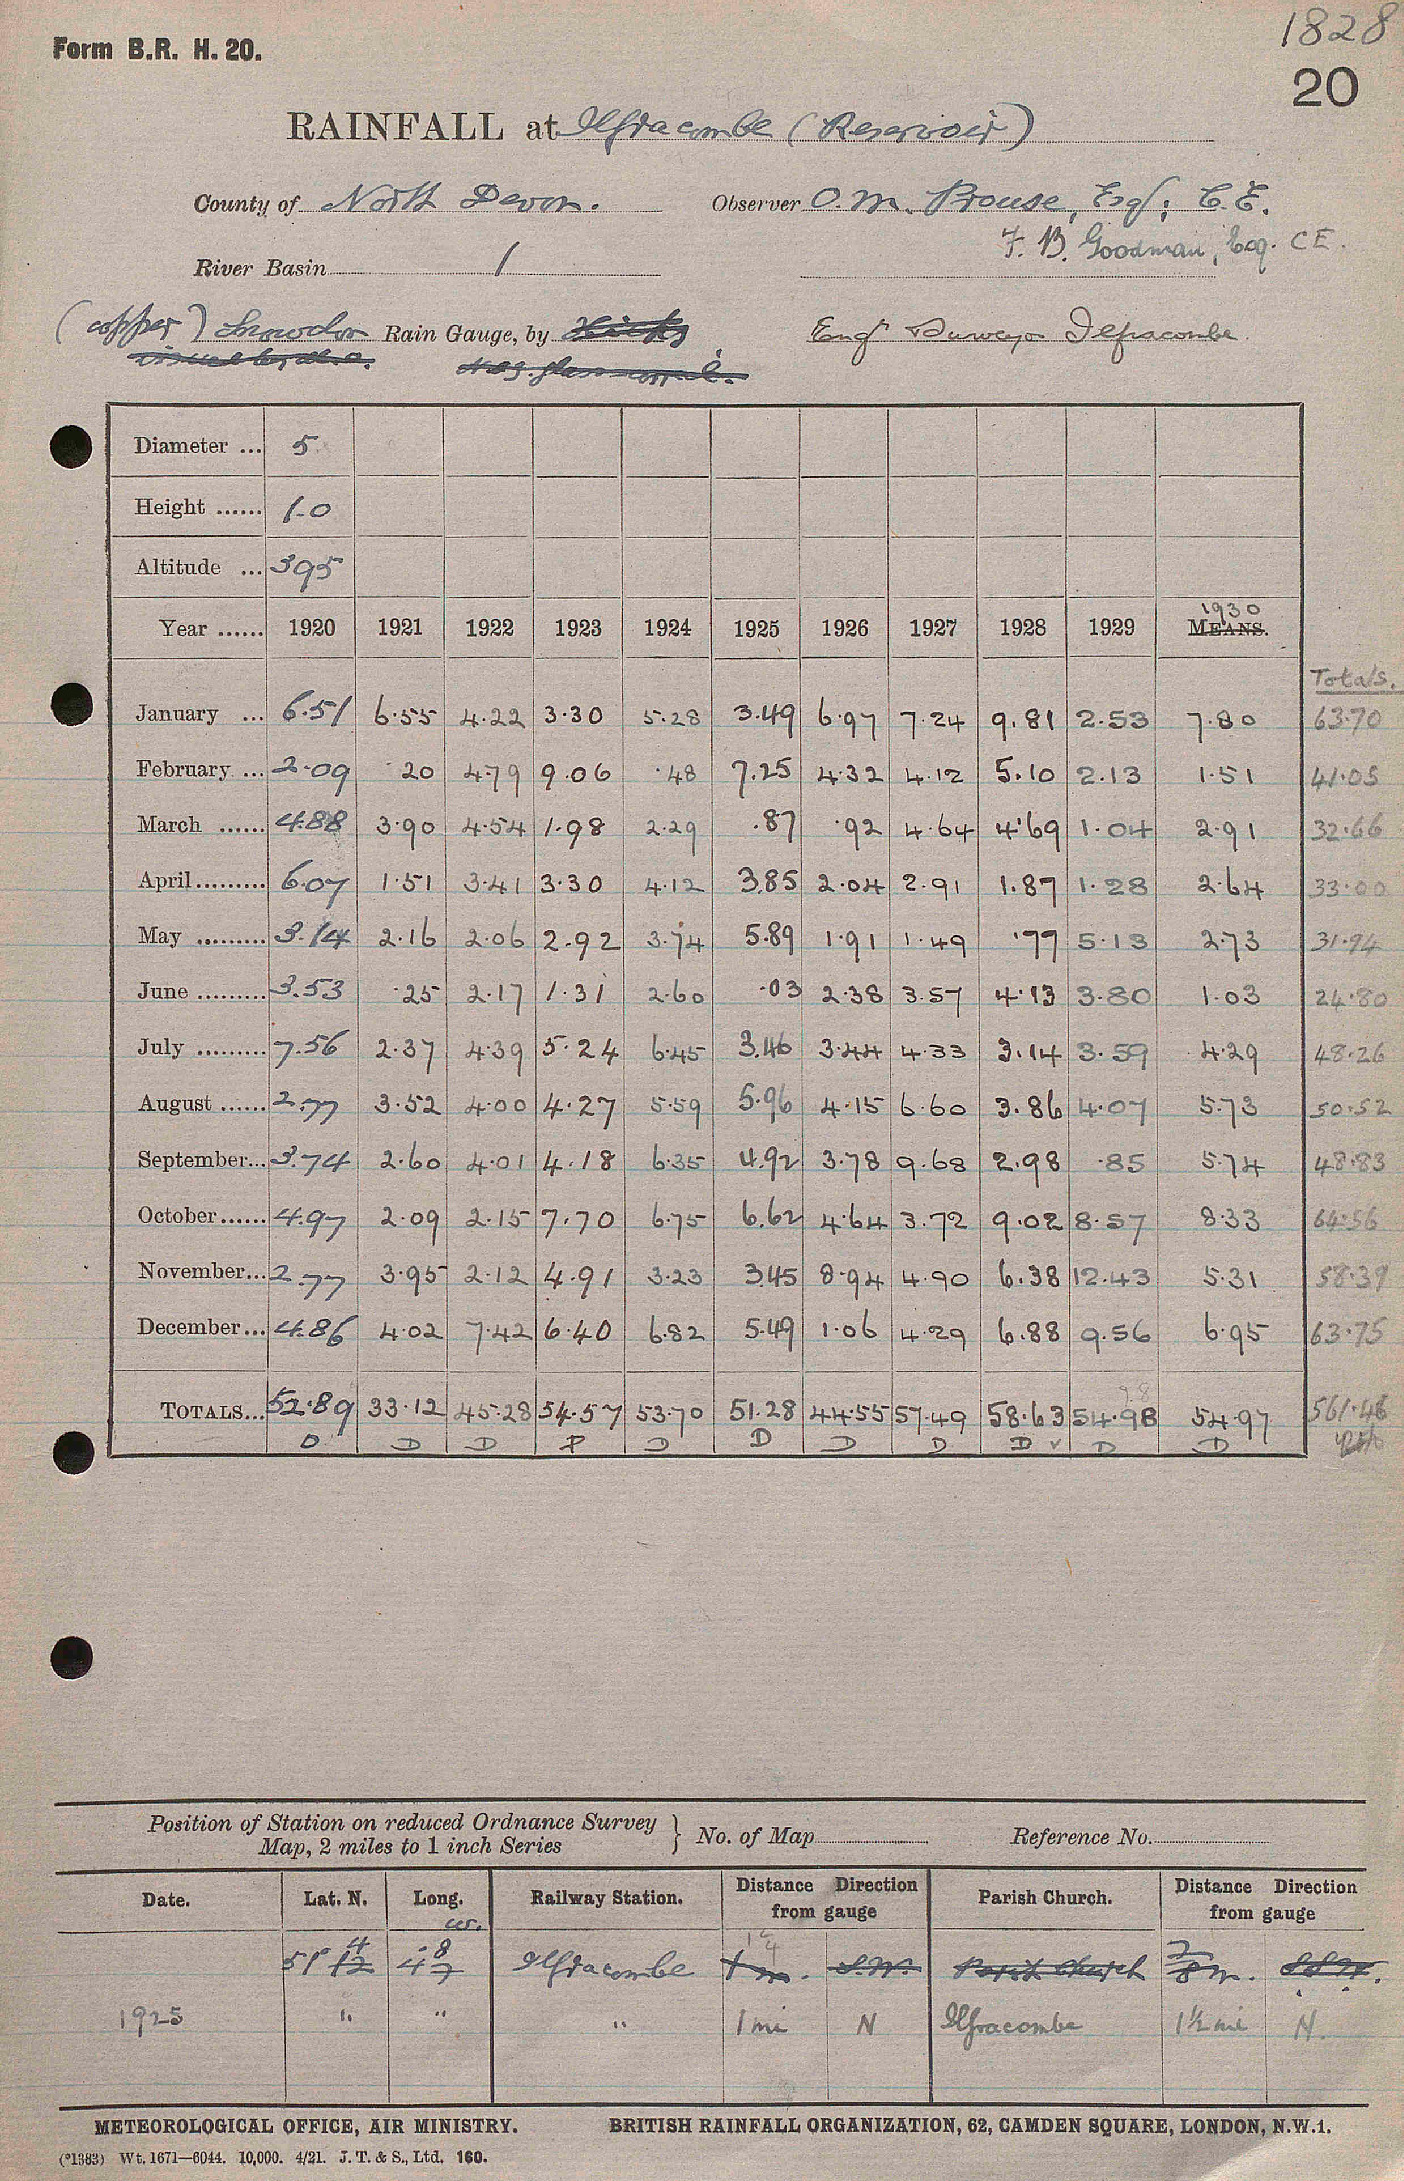 1828
Form B.R. H. 20.
20
RAINFALL at Ilfracombe (Reservoir)
County of North Devon. Observer O. M. Prouse, Esq; C.E.
F. B. Goodman, Esq. C E.
River Basin 1
(copper) Snowdon Rain Gauge, by Hicks Engr Surveyor Ilfracombe
Diameter ... 5
Height ...... 1-0
Altitude ... 395
Year ...... 1920 1921 1922 1923 1924 1925 1926 1927 1928 1929 MEANS. 1930
Totals.
January ... 6.51 6.55 4.22 3.30 5.28 3.49 6.97 7.24 9.81 2.53 7.80 63.70
February ... 2.09 .20 4.79 9.06 .48 7.25 4.32 4.12 5.10 2.13 1.51 41.05
March ...... 4.88 3.90 4.54 1.98 2.29 .87 .92 4.64 4.69 1.04 2.91 32.66
April ......... 6.07 1.51 3.41 3.30 4.12 3.85 2.04 2.91 1.87 1.28 2.64 33.00
May ......... 3.14 2.16 2.06 2.92 3.74 5.89 1.91 1.49 .77 5.13 2.73 31.94
June ......... 3.53 .25 2.17 1.31 2.60 .03 2.38 3.57 4.13 3.80 1.03 24.80
July ......... 7.56 2.37 4.39 5.24 6.45 3.46 3.44 4.33 3.14 3.59 4.29 48.26
August ...... 2.77 3.52 4.00 4.27 5.59 5.96 4.15 6.60 3.86 4.07 5.73 50.52
September... 3.74 2.60 4.01 4.18 6.35 4.92 3.78 9.68 2.98 .85 5.74 48.83
October...... 4.97 2.09 2.15 7.70 6.75 6.62 4.64 3.72 9.02 8.57 8.33 64.56
November... 2.77 3.95 2.12 4.91 3.23 3.45 8.94 4.90 6.38 12.43 5.31 58.39
December... 4.86 4.02 7.42 6.40 6.82 5.49 1.06 4.29 6.88 9.56 6.95 63.75
98
TOTALS... 52.89 33.12 45.28 54.57 53.70 51.28 44.55 57.49 58.63 54.98 54.97 561.46
D D D P D D D D D v D D
Position of Station on reduced Ordnance Survey } No. of Map Reference No.
Map, 2 miles to 1 inch Series
Date. Lat. N. Long. Railway Station. Distance Direction from gauge Parish Church. Distance Direction from gauge
W.
4 8 1 1/4
51° 12 4° 7 Ilfracombe 1 m. S.W. Parish Church 7/8 m. S.S.W.
1925 " " " 1 mi N Ilfracombe 1½ mi N.
METEOROLOGICAL OFFICE, AIR MINISTRY. BRITISH RAINFALL ORGANIZATION, 62, CAMDEN SQUARE, LONDON, N.W.1.
(*1383) Wt. 1671—6044. 10,000. 4/21. J. T. & S., Ltd. 160.